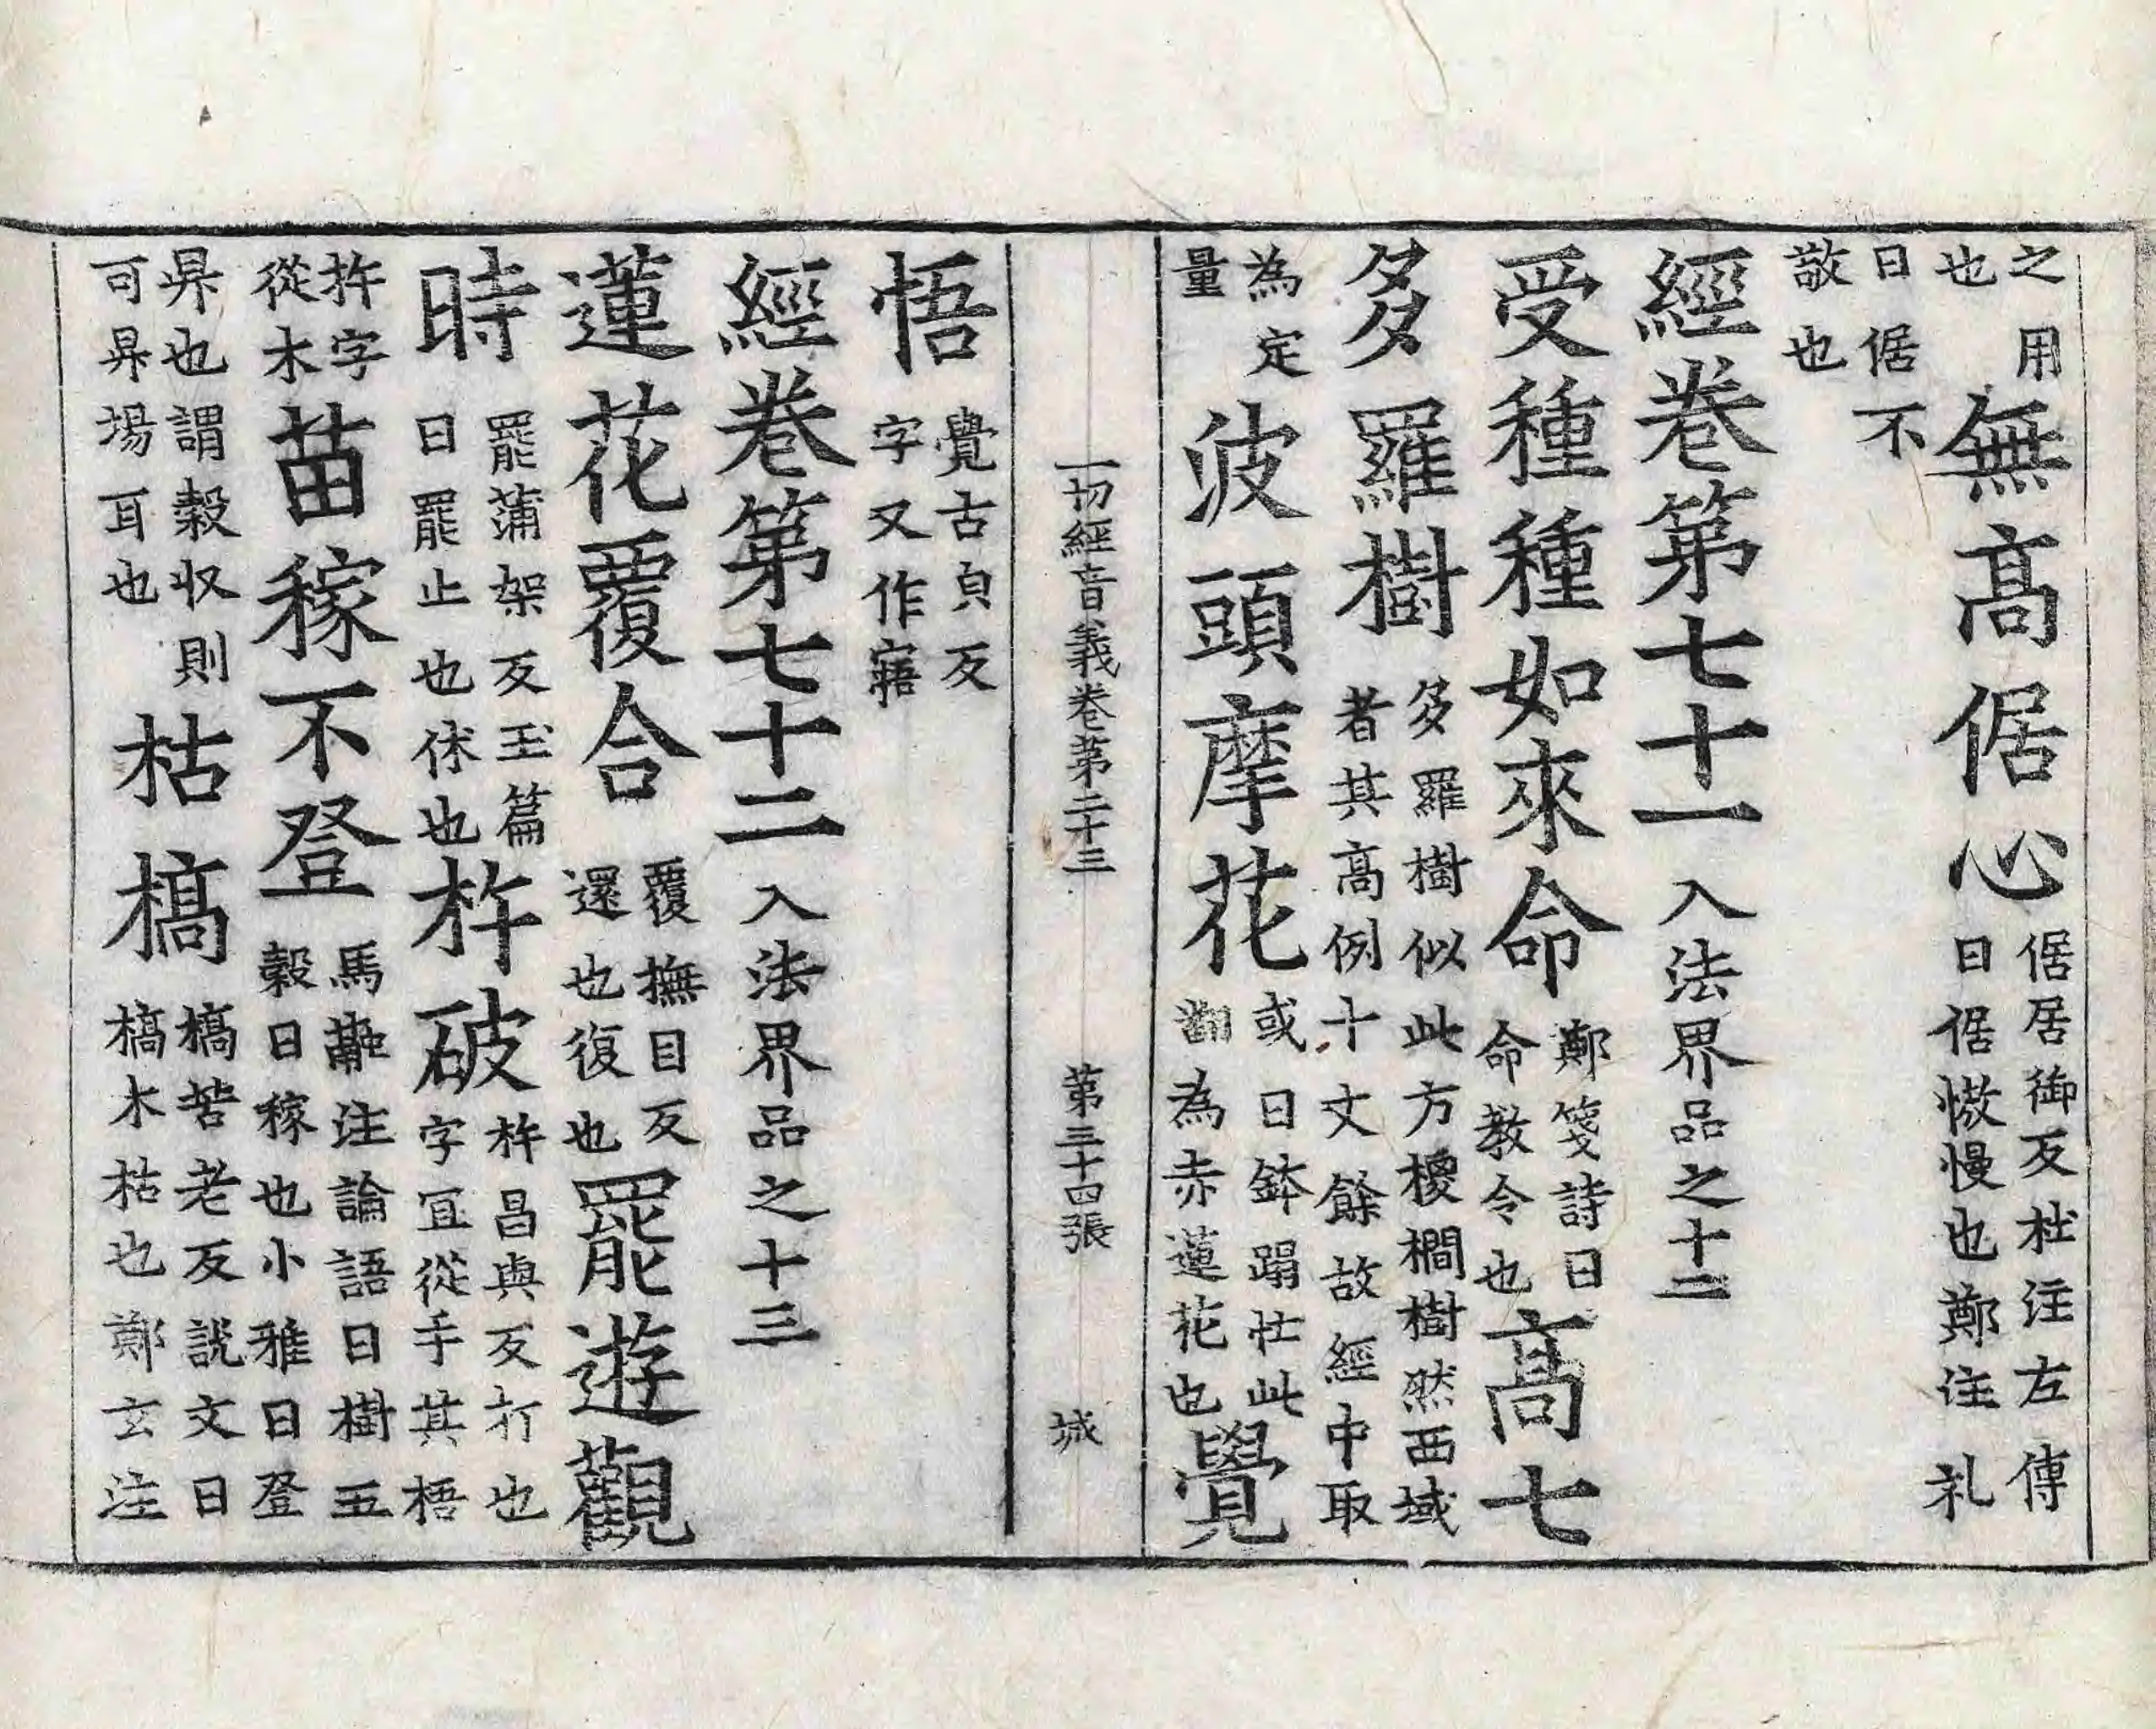 之用也無高倨心倨居御反杜注左傳曰倨慠慢也鄭注礼
曰倨不敬也
經卷第七十一入法界品之十二
受種種如來命鄭箋詩曰命教令也高七
多羅樹多羅樹似此方椶櫚樹然西域者其高例十丈餘故經中取
為定量波頭摩花或曰鉢蹋忙此翻為赤蓮花也覺
一切經音義卷第二十三 第三十四張 城
悟覺古皃反字又作寤
經卷第七十二入法界品之十三
蓮花覆合覆撫目反還也復也罷遊觀
時罷蒲架反玉篇曰罷止也休也杵破杵昌與反打也字冝從手其梧
杵字從木苗稼不登馬融注論語曰樹五穀曰稼也小雅曰登
昇也謂穀収則可昇場耳也枯槁槁苦老反説文曰槁木枯也鄭玄注